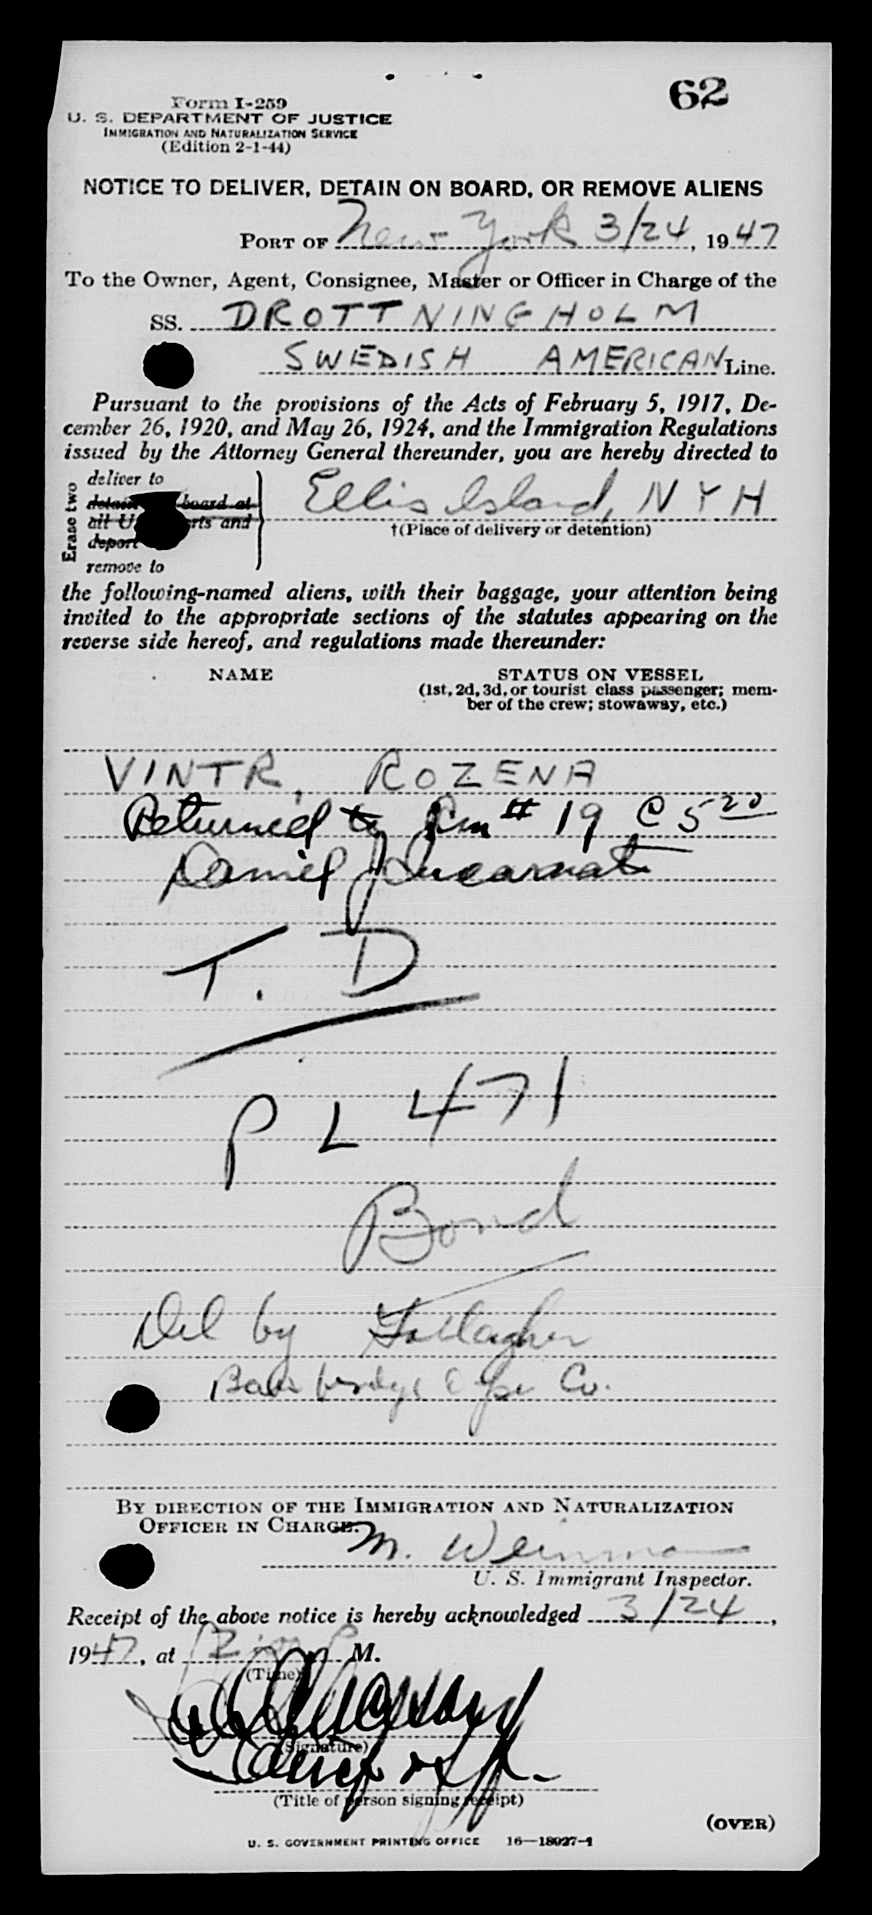 62
Form I-259
U. S. DEPARTMENT OF JUSTICE
IMMIGRATION AND NATURALIZATION SERVICE
(Edition 2-1-44)
NOTICE TO DELIVER, DETAIN ON BOARD, OR REMOVE ALIENS
PORT OF New York 3/24, 1947
To the Owner, Agent, Consignee, Master or Officer in Charge of the
SS. DROTTNINGHOLM
SWEDISH AMERICAN Line.
Pursuant to the provisions of the Acts of February 5, 1917, De-
cember 26, 1920, and May 26, 1924, and the Immigration Regulations
issued by the Attorney General thereunder, you are hereby directed to
Erase two
deliver to
detain board at
all U rts and
deport
remove to
Ellis Island, NYH
†(Place of delivery or detention)
the following-named aliens, with their baggage, your attention being
invited to the appropriate sections of the statutes appearing on the
reverse side hereof, and regulations made thereunder:
NAME
STATUS ON VESSEL
(1st, 2d, 3d, or tourist class passenger; mem-
ber of the crew; stowaway, etc.)
VINTR, ROZENA
Returned to Rm # 19 @ 5 20
Daniel J
T. D
PL 471
Bond
Del by Gallagher
Co.
BY DIRECTION OF THE IMMIGRATION AND NATURALIZATION
OFFICER IN CHARGE.
M.
U. S. Immigrant Inspector.
Receipt of the above notice is hereby acknowledged 3/24,
1947, at M.
(Time)
(Signature)
(Title of person signing receipt)
(OVER)
U. S. GOVERNMENT PRINTING OFFICE 16—18027-1